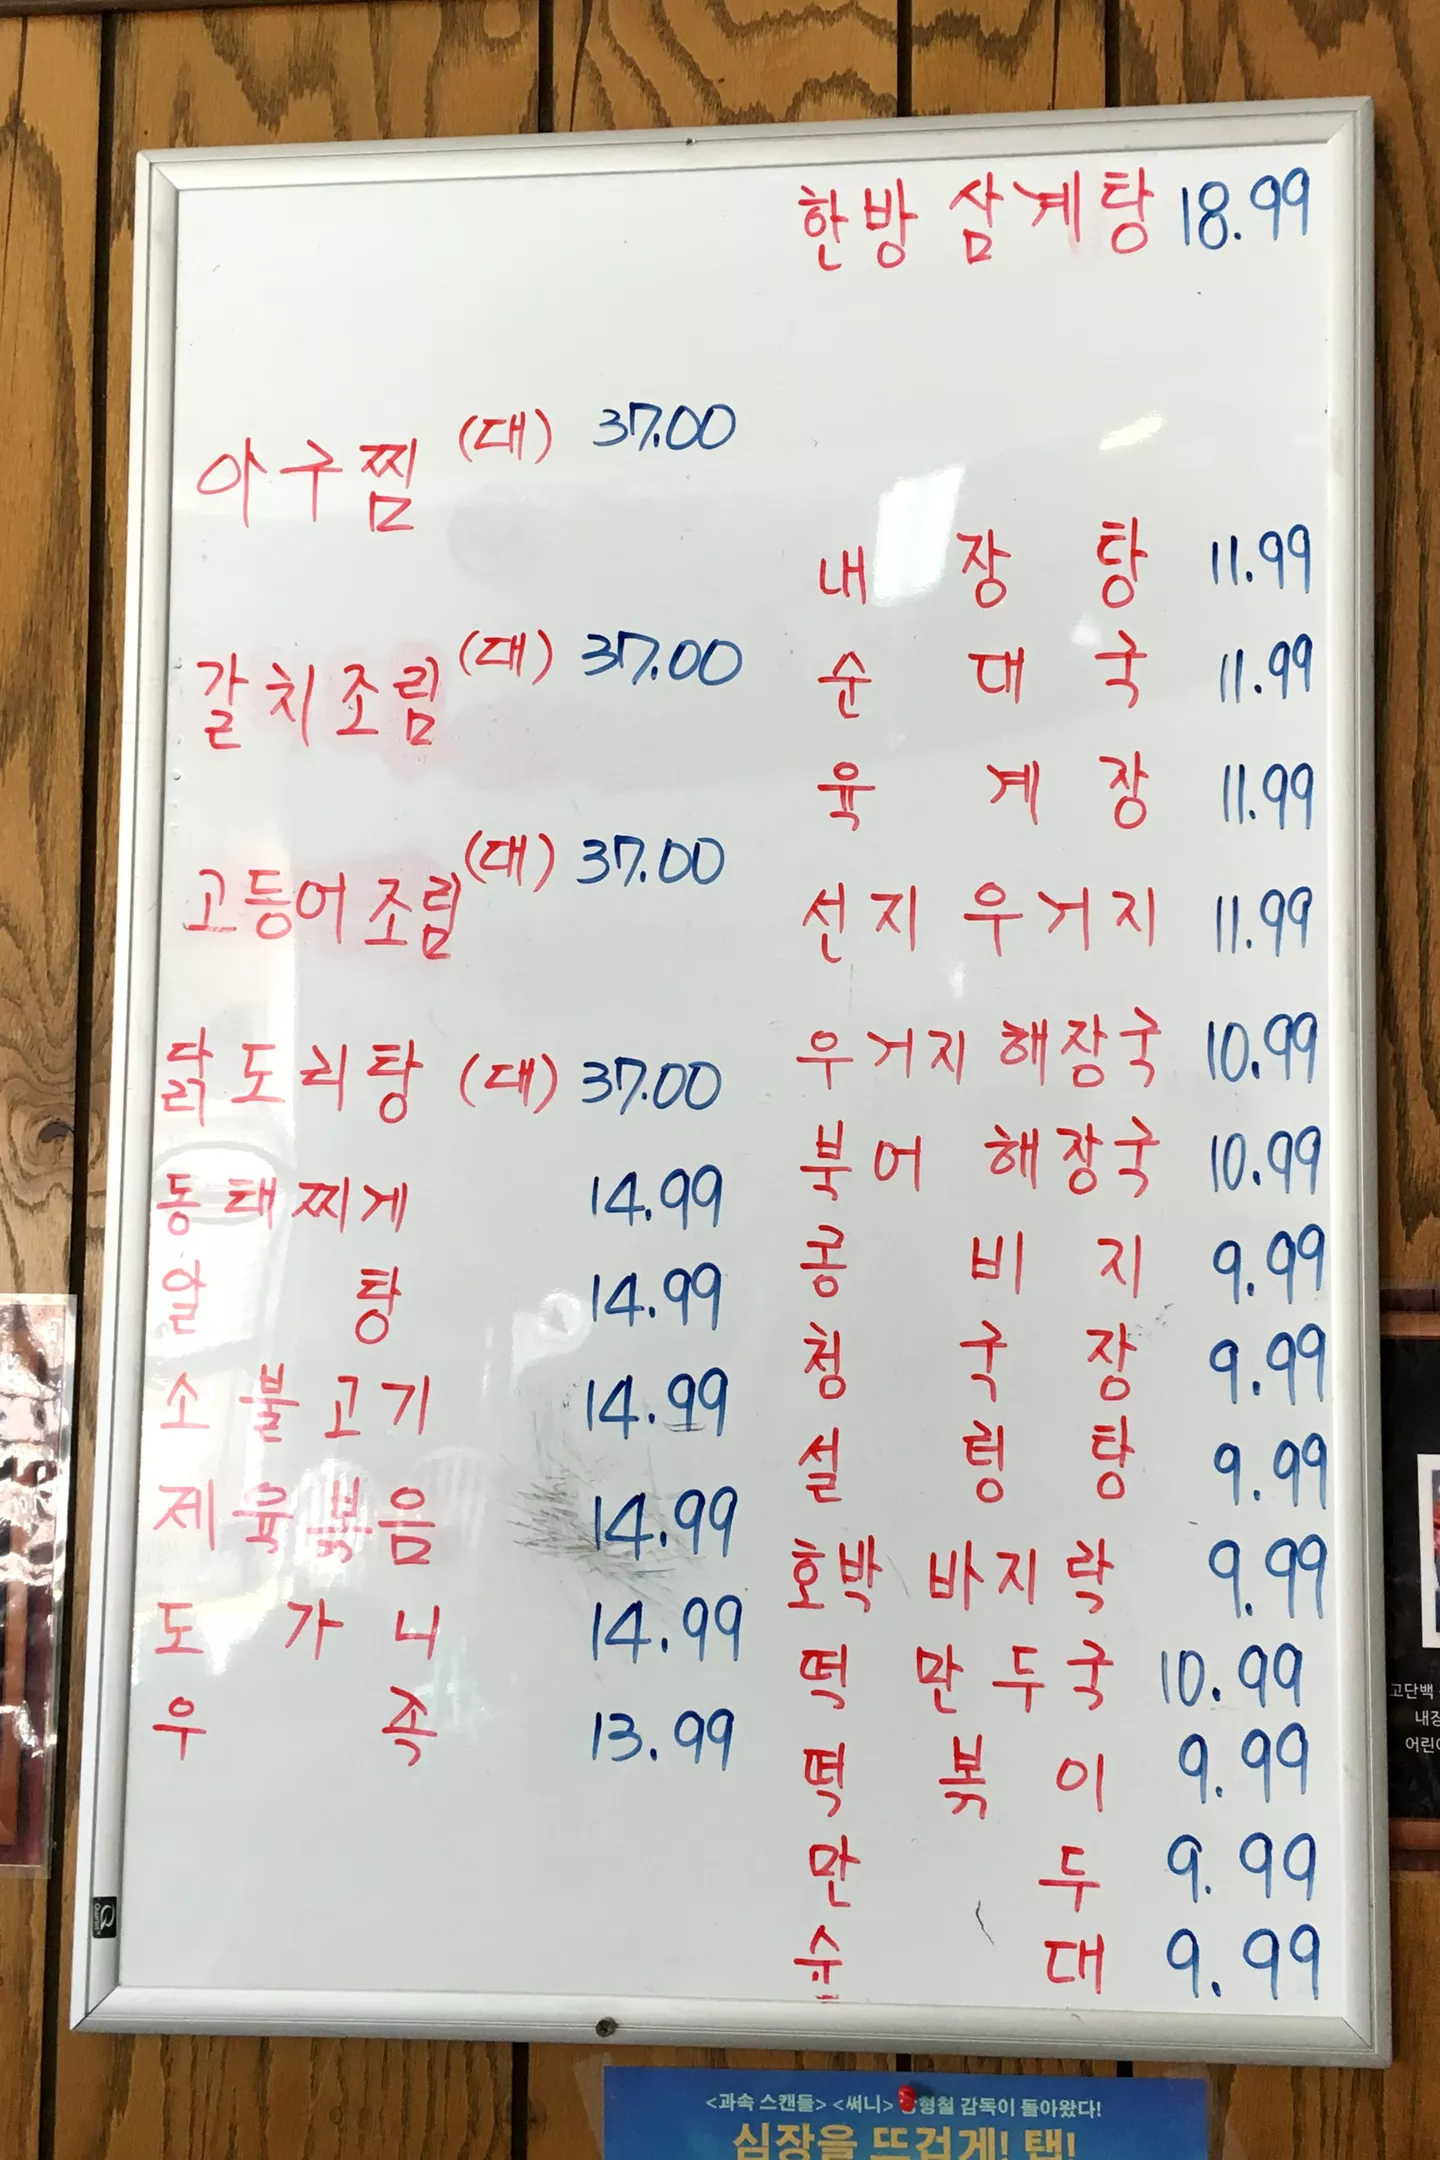 아구찜 (대) 37.00
갈치조림 (대) 37.00
고등어조림 (대) 37.00
닭도리탕 (대) 37.00
동태찌게 14.99
알탕 14.99
소불고기 14.99
제육볶음 14.99
도가니 14.99
우족 13.99
한방 삼계탕 18.99
내장탕 11.99
순대국 11.99
육계장 11.99
선지 우거지 11.99
우거지 해장국 10.99
북어 해장국 10.99
콩비지 9.99
청국장 9.99
설렁탕 9.99
호박 바지락 9.99
떡 만두국 10.99
떡볶이 9.99
만두 9.99
순대 9.99
고단백
<과속 스캔들> <써니> 형철 감독이 돌아왔다!
심장을 뜨겁게! 탭!